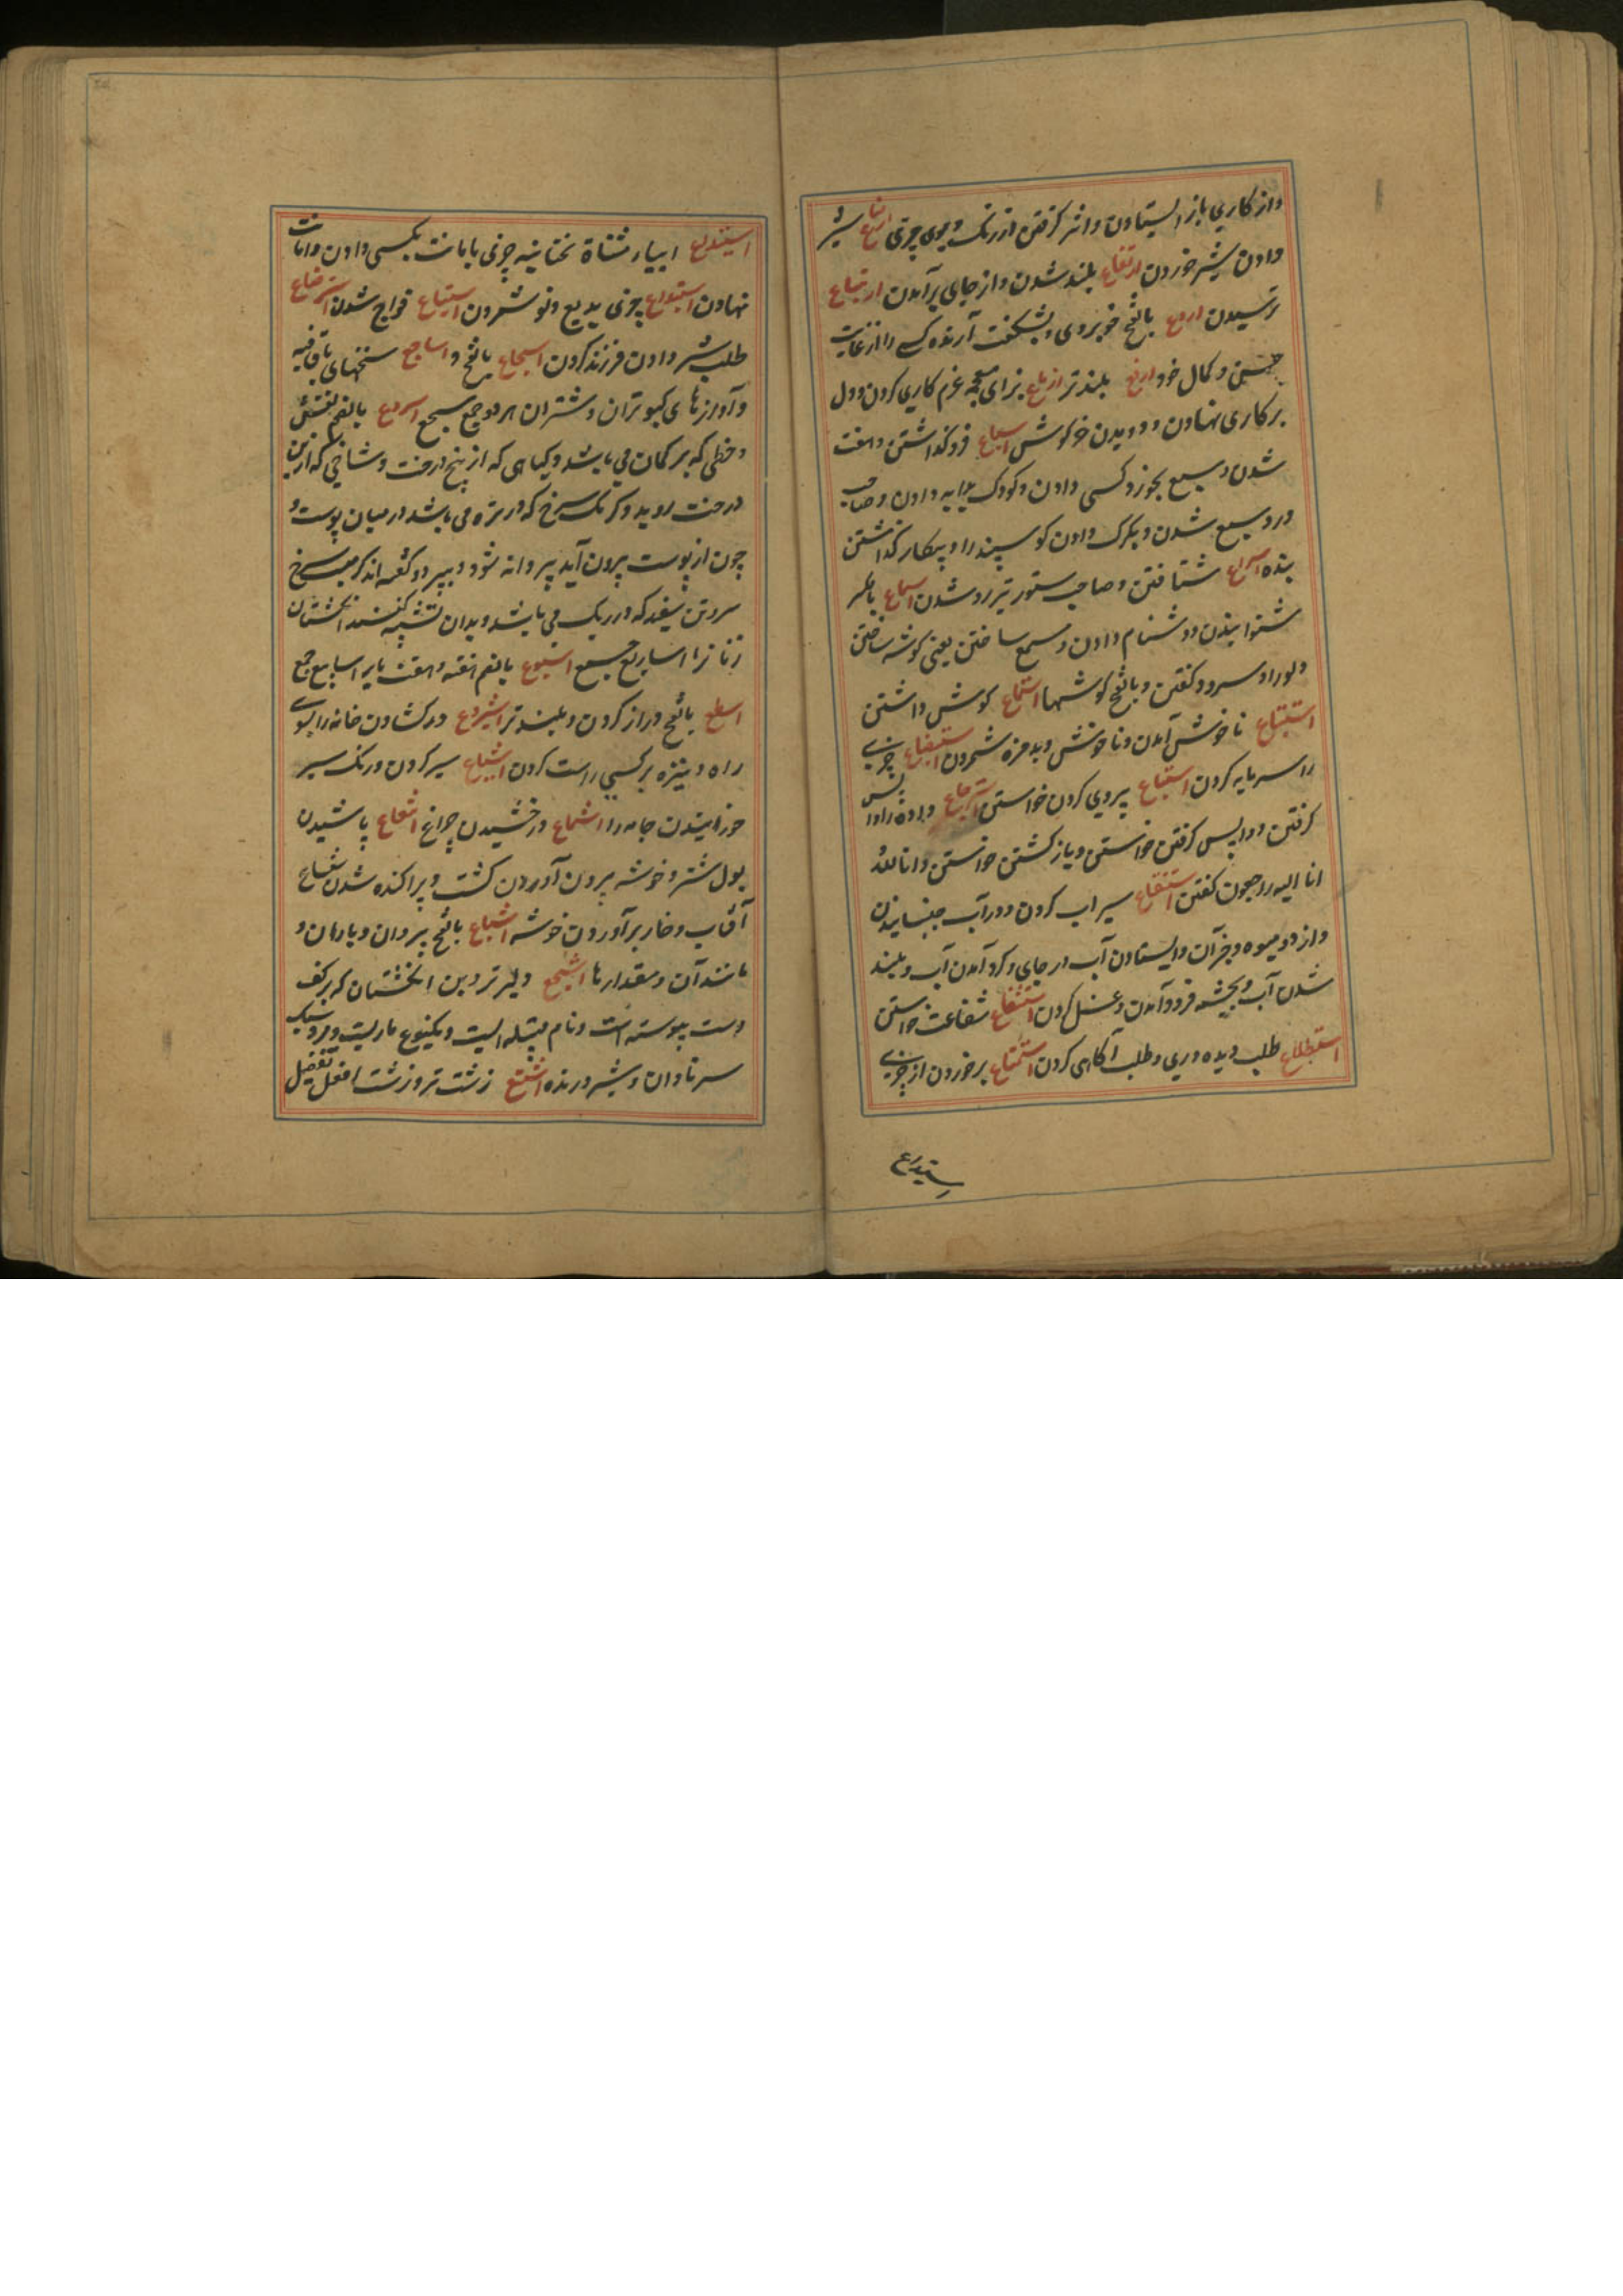 واز کاری باز ایستادن واثر کرفتن از رنک وبوی چیزی ارضاع شیر
دادن شیر خوردن ارتفاع بلند شدن واز جای برآمدن ارتیاع
ترسیدن اروع بالفتح خوبروی وبشکفت آرنده کسی را از غایت
حسن وکمال خود ارفع بلندتر ازماع بزای معجمه عزم کاری کردن ودل
بر کاری نهادن ودویدن خرکوش اسباع فروکذاشتن وهفت
شدن وسبع بخورد کسی دادن وکودک بدایه دادن وصاحب
درد سبع شدن وبکرک دادن کوسپند را وبیکار کذاشتن
بنده اسراع شتافتن وصاحب ستور تیزرو شدن اسماع بالکسر
شنوانیدن ودشنام دادن ومسمع ساختن یعنی کوشه ساختن
دلو را وسرود کفتن وبالفتح کوشها استماع کوش داشتن
استبشاع ناخوش آمدن وناخوش وبدمزه شمردن استبضاع چیزی
را سرمایه کردن استتباع پیروی کردن خواستن استرجاع داده را وا پس
کرفتن ووا پس کرفتن خواستن وباز کشتن خواستن وانا لله
انا الیه راجعون کفتن استنقاع سیراب کردن ودر آب جنبانیدن
دارو ومیوه وجز آن وایستادن آب در جای وکرد آمدن آب وبلند
شدن آب وبچشمه فرود آمدن وغسل کردن استشفاع شفاعت خواستن
استطلاع طلب دیده وری وطلب آکاهی کردن استمتاع برخوردن از چیزی
ستیدع
استیداع ابیاء مثناة تحتانیه چیزی بامانت بکسی دادن وامانت
نهادن استبداع چیزی بدیع ونو شمردن استیساع فراخ شدن استرضاع
طلب شیر دادن فرزند کردن اسجاع بالفتح واساجیع سخنهای باقافیه
وآوازهای کبوتران وشتران هردو جمع سجع اسروع بالضم نقشی
وخطی که بر کمان می باشد وکیاهی که از بیخ درخت وشاخی که از بن
درخت روید وکرمک سرخ که در تره می باشد در میان پوست و
چون از پوست بیرون آید پروانه شود وبپرد وکفته اند کرمیست سرخ
سر وتن سفید که در ریک می باشد وبدان تشبیه کنند انکشتان
زنان را اساریع جمع اسبوع بالضم هفته وهفت بار اسابیع جمع
اسطع بالفتح دراز کردن وبلندتر اشراع در کشادن خانه را بسوی
راه ونیزه بر کسی راست کردن اشباع سیر کردن ورنک سیر
خورانیدن جامه را اشماع درخشیدن چراغ اشعاع پاشیدن
بول شتر وخوشه بیرون آوردن کشت وپراکنده شدن شعاع
آفتاب وخار برآوردن خوشه اشیاع بالفتح پیروان ویاران و
مانند آن ومقدارها اشجع دلیرتر وبن انکشتان که بر کف
دست پیوسته است ونام قبیله ایست ویکنوع ماریست ومرد سبک
سر نادان وشیر درنده اشنع زشت تر وزشت افعل تفضیل